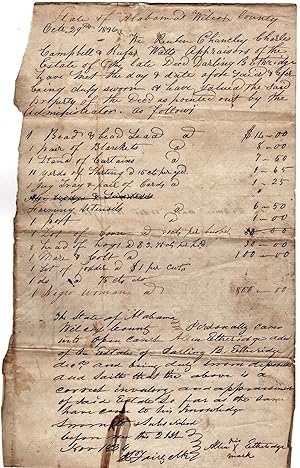 State of Alabama Wilcox County
Octr. 29th 1836
We Reuben Chancley Charles
Campbell & Rufus Watts Appraisors of the
Estate of the late Decd Darling B Etheridge
have met the day & date above & after
being duly sworn & have valued the said
property of the Decd as pointed out by the
administrator as follows
1 Bead & bead Stead a $14=00
1 pair of Blankets a 5=00
1 Stand of Curtains a 7=50
11 yards of Shirting a 15 ct pr yd 1=65
1 pair of Cards a 1=25
Farming utensils a 6=50
1 a 6=00
of Corn a pr
head of hogs a $3.75 cts pr hd 30=00
1 Mare & Colt a 100=00
1 Lot of fodder a $1 pr cwt
1 do a 75 cts do
1 Negro woman a 500=00
The State of Alabama
Wilcox County Personally came
into Open Court Allen Etheridge adm
of the Estate of Darling B. Etheridge
decd and being duly sworn deposeth
and saith that the above is a
correct inventory and appraisment
of said Estate so far as the same
have come to his knowledge
Sworn to & subscribed
before me the 21st
Novr 1836 Allen his Etheridge
mark